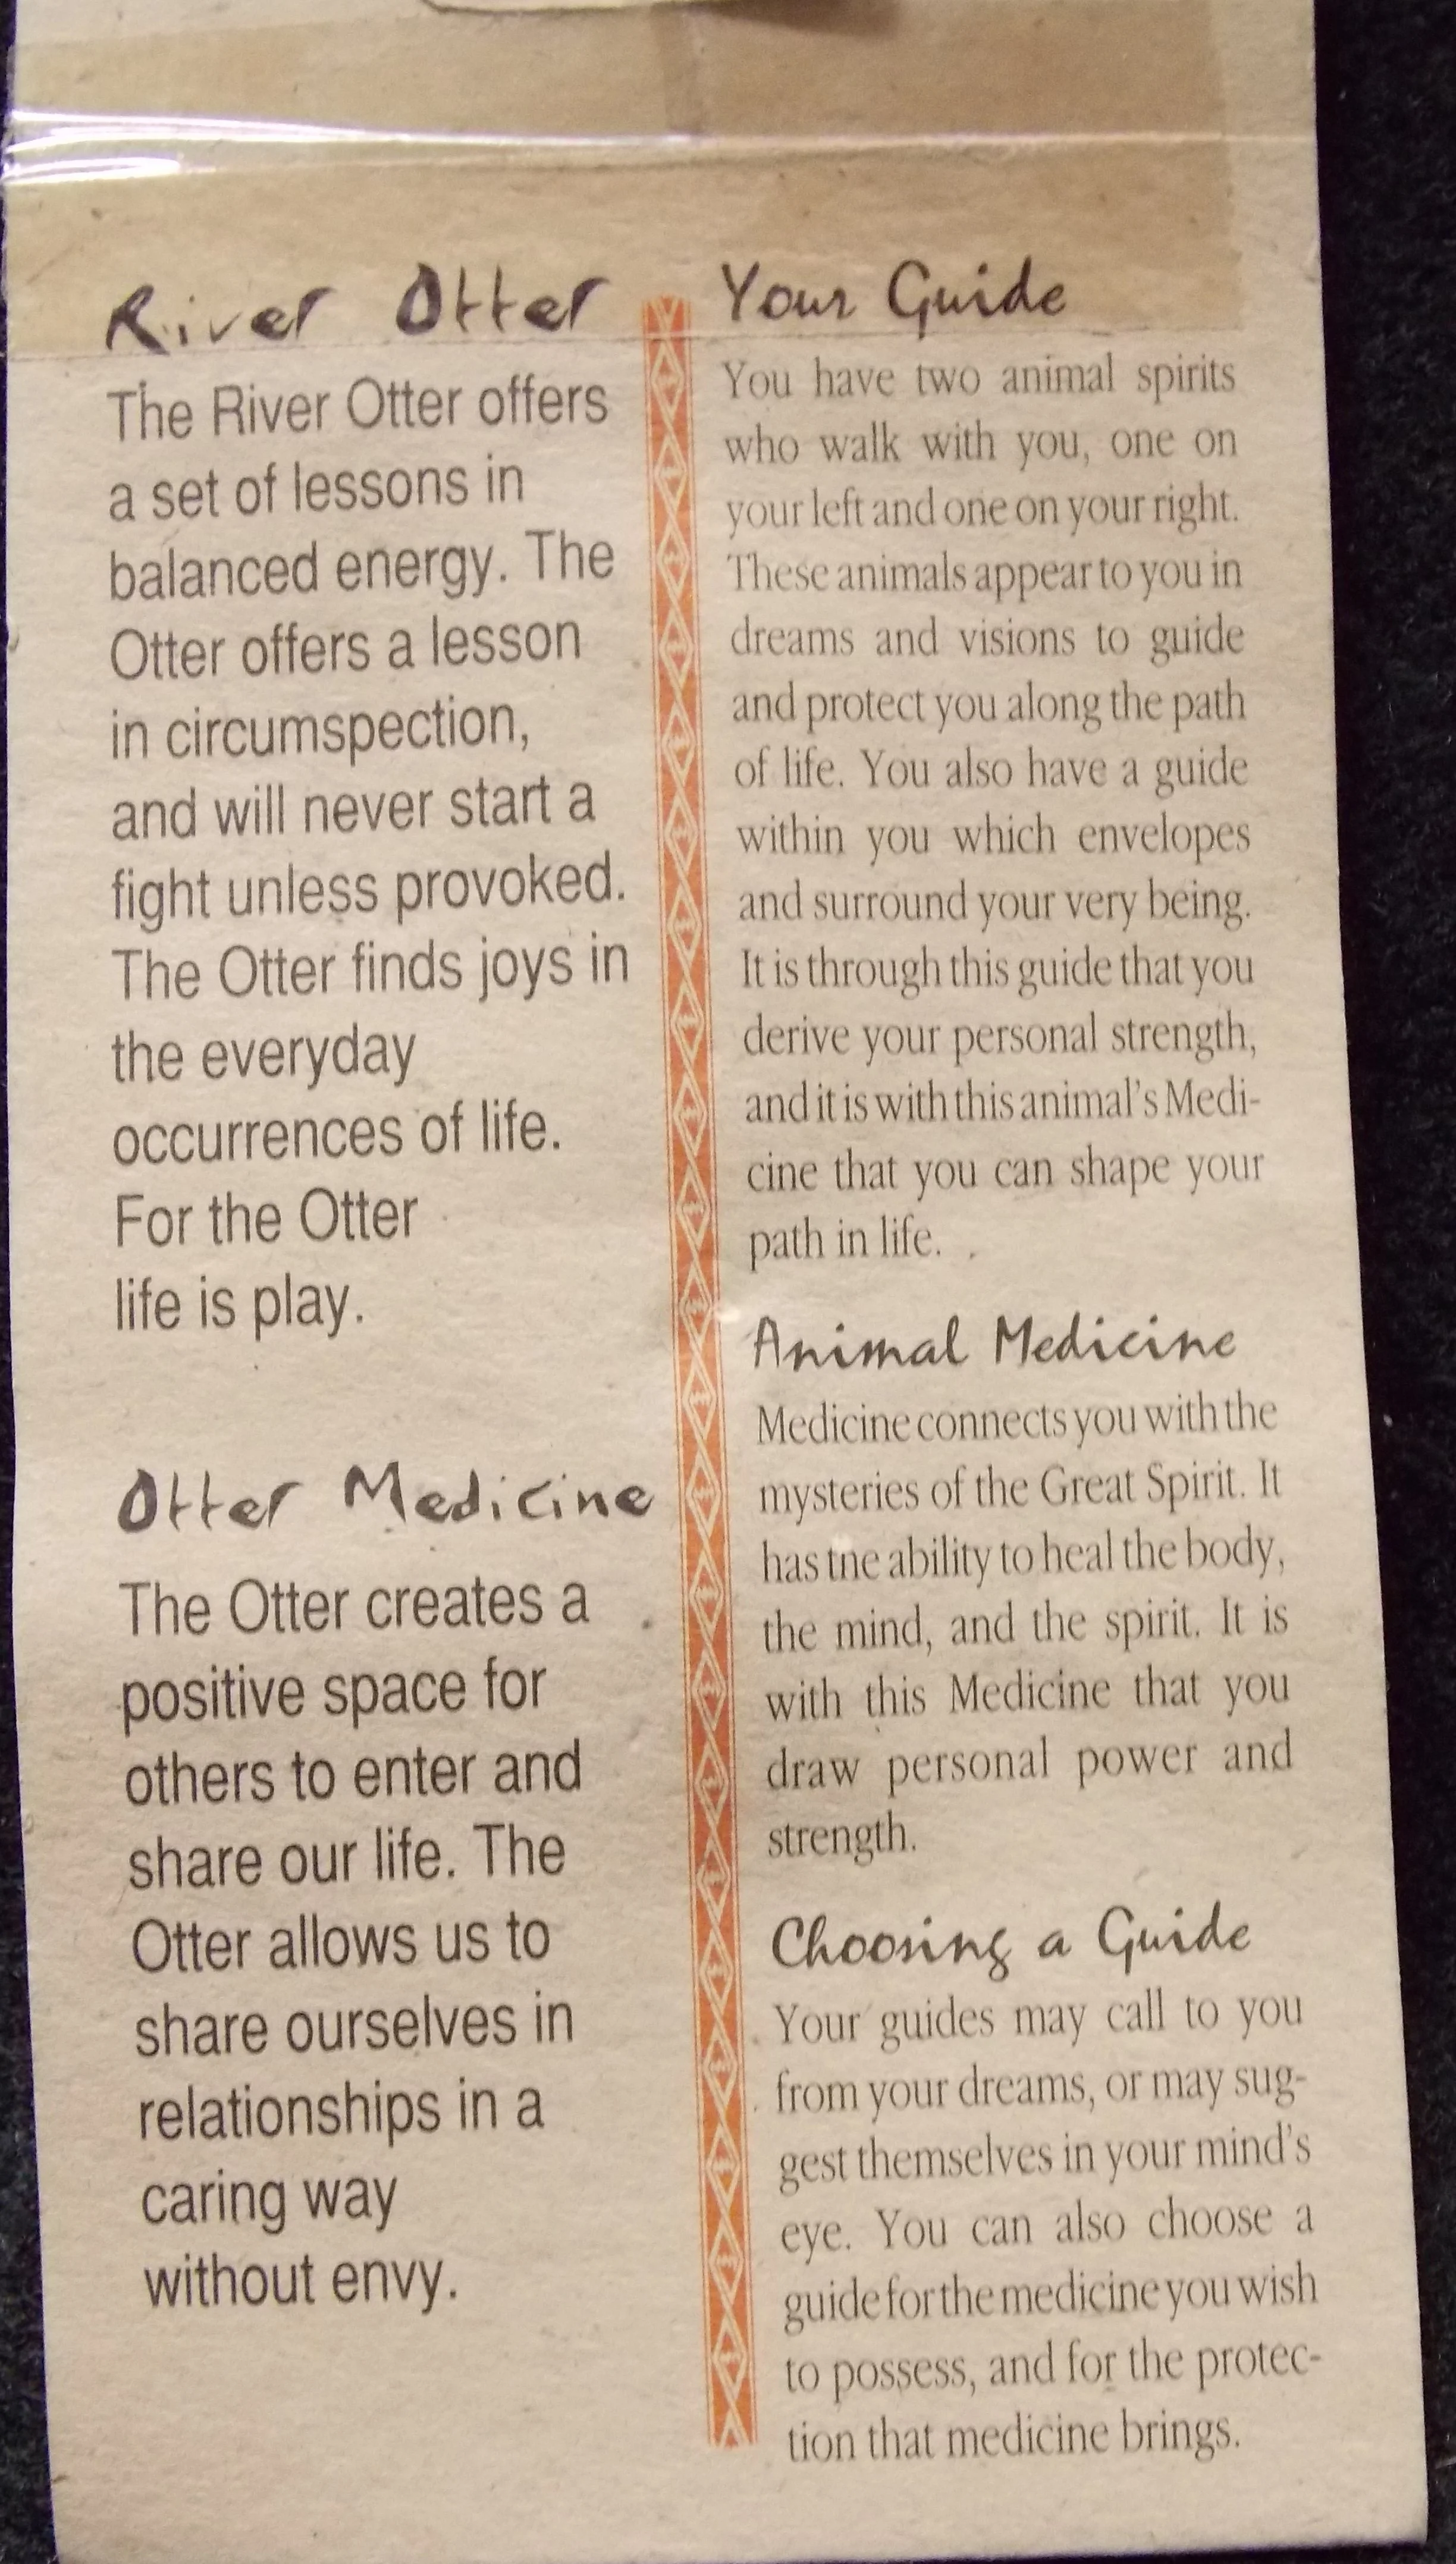 River Otter
The River Otter offers
a set of lessons in
balanced energy. The
Otter offers a lesson
in circumspection,
and will never start a
fight unless provoked.
The Otter finds joys in
the everyday
occurrences of life.
For the Otter
life is play.
Otter Medicine
The Otter creates a
positive space for
others to enter and
share our life. The
Otter allows us to
share ourselves in
relationships in a
caring way
without envy.
Your Guide
You have two animal spirits
who walk with you, one on
your left and one on your right.
These animals appear to you in
dreams and visions to guide
and protect you along the path
of life. You also have a guide
within you which envelopes
and surround your very being.
It is through this guide that you
derive your personal strength,
and it is with this animal's Medi-
cine that you can shape your
path in life.
Animal Medicine
Medicine connects you with the
mysteries of the Great Spirit. It
has the ability to heal the body,
the mind, and the spirit. It is
with this Medicine that you
draw personal power and
strength.
Choosing a Guide
Your guides may call to you
from your dreams, or may sug-
gest themselves in your mind's
eye. You can also choose a
guide for the medicine you wish
to possess, and for the protec-
tion that medicine brings.